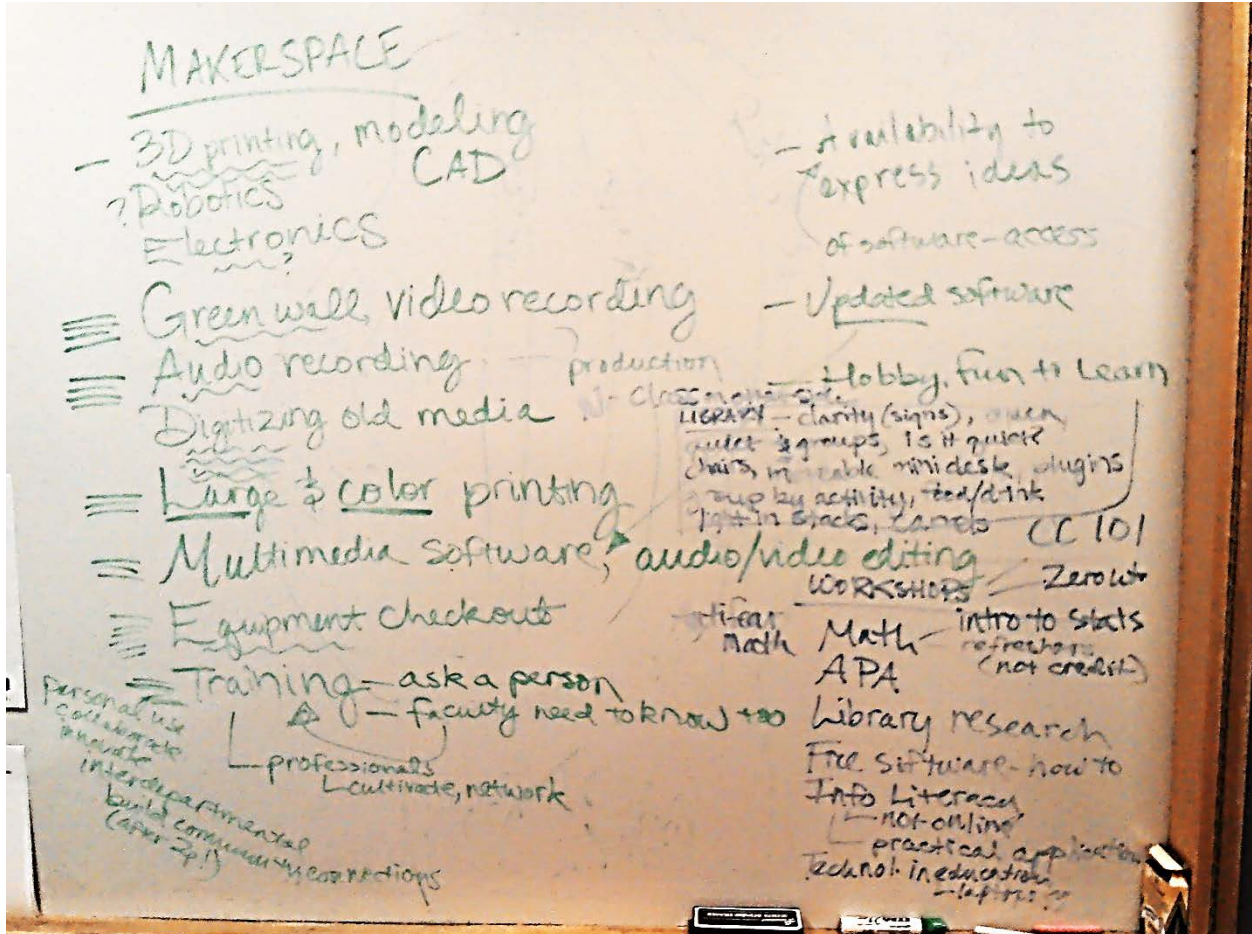 MAKERSPACE
- 3D printing, modeling
CAD
? Robotics
Electronics
?
Green wall, video recording
Audio recording
production
Digitizing old media
Large & color printing
Multimedia software, audio/video editing
Equipment checkout
Training - ask a person
- faculty need to know too
professionals
cultivate, network
personal use
collaborate
interdepartmental
build community connections
(after 2p!)
- Availability to
express ideas
of software - access
- Updated software
- Hobby, fun to Learn
LIBRARY - clarity (signs),
quiet & groups, is it quiet
chairs, moveable mini desks, plugins
group by activity, food/drink
light in stacks, carrels
CC 101
WORKSHOPS
Math
Math - intro to stats
refreshers
(not credit)
APA
Library research
Free software - how to
Info Literacy
not online
practical application
Technol. in education
- laptops